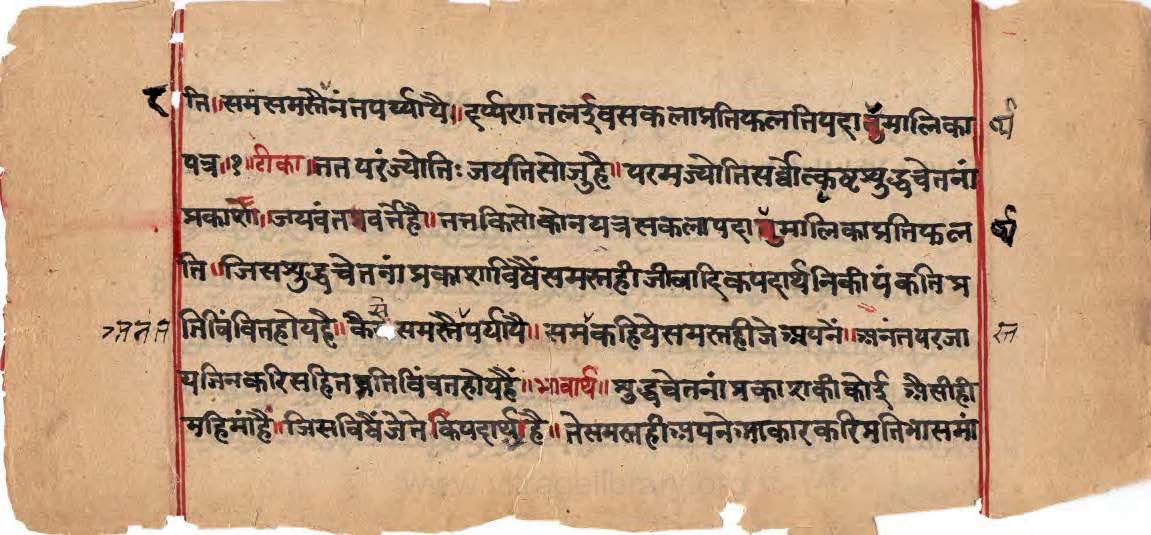 ति।समं समस्तैरनंतपर्य्यायैः॥दर्प्पणतल इव सकला प्रतिफलति पदार्थमालिका
यत्र॥१॥टीका॥तत परंज्योतिः जयति सो जु है॥परम ज्योति सर्व्वोत्कृष्ट शुद्ध चेतनां
प्रकाश॥जयवंत प्रवर्त्तै है॥तत किसो कोन यत्र सकला पदार्थमालिका प्रतिफल
ति॥जिस शुद्ध चेतनां प्रकाश विषैं समस्त ही जीवादिक पदार्थनि की पंकति प्र
तिविंवित होय है॥कैसैं समस्तैः पर्यायैः॥समं कहिये समस्त ही जे अपनें॥अनंत परजा
य तिन करि सहित प्रतिविंवत होय हैं॥भावार्थ॥शुद्ध चेतनां प्रकाश की कोई अैसी ही
महिमां हैं॥जिस विषैं जेते कि पदार्थ है॥ते समस्त ही अपने आकार करि प्रतिभासमां